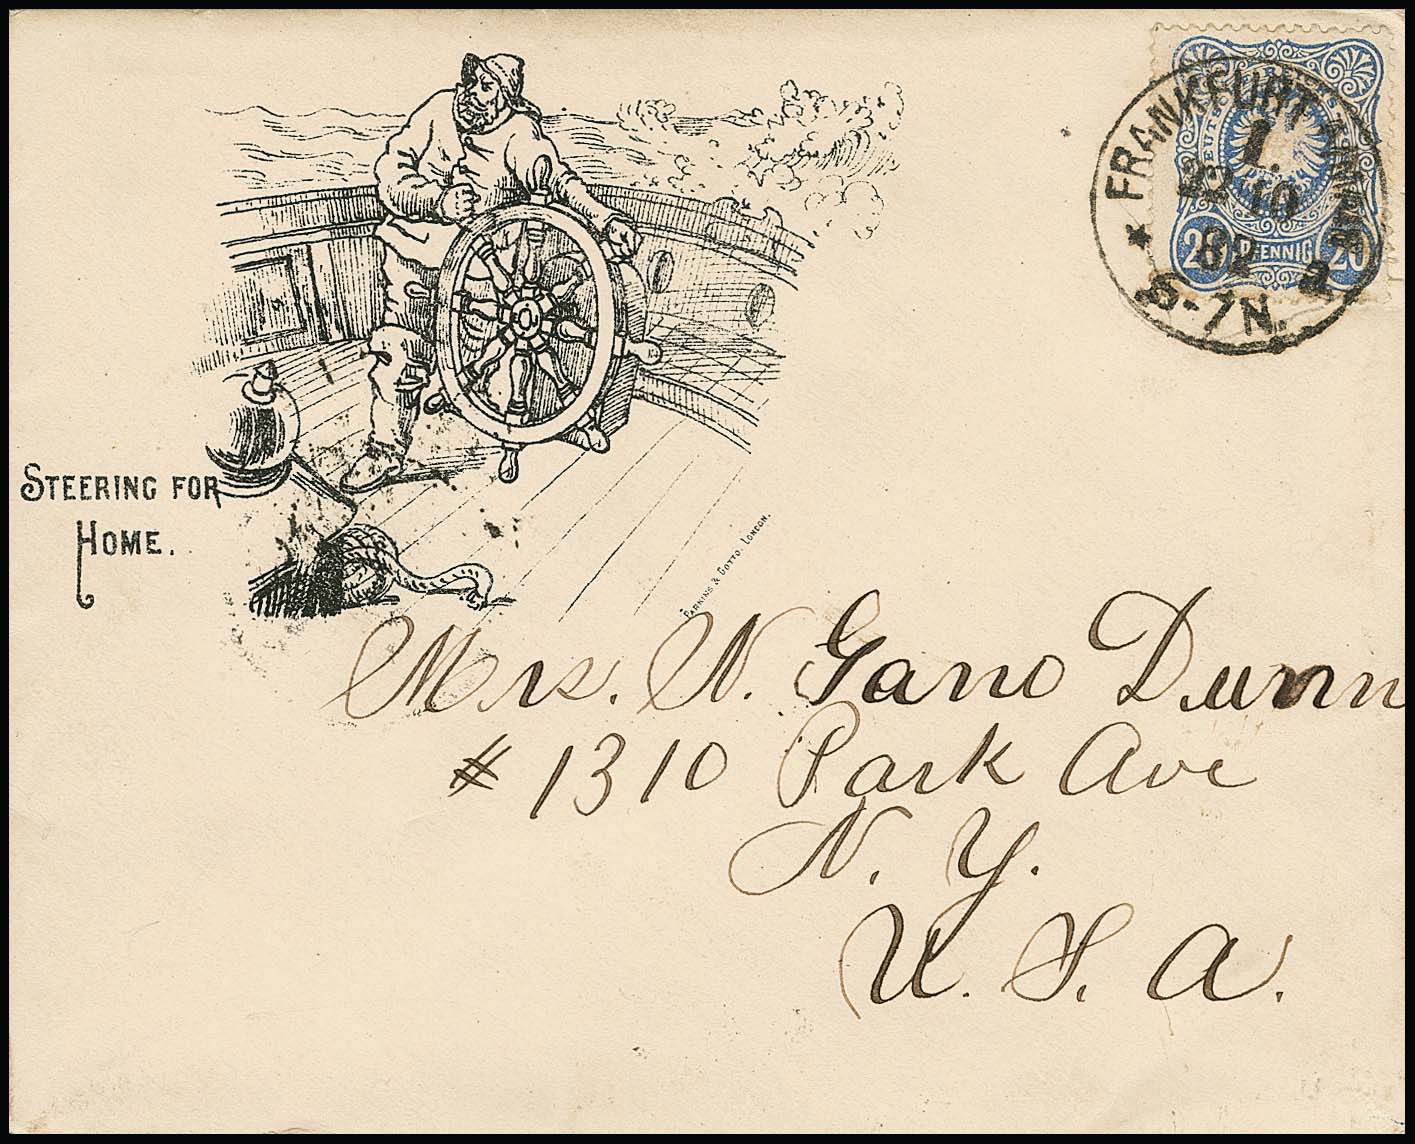 FRANKFURT A. MAIN
1.
22 10
82
6-7N. a
20 PFENNIG 20
STEERING FOR
HOME.
PARKINS & GOTTO. LONDON.
Mrs. N. Gano Dunn
# 1310 Park Ave
N. Y.
U. S. A.